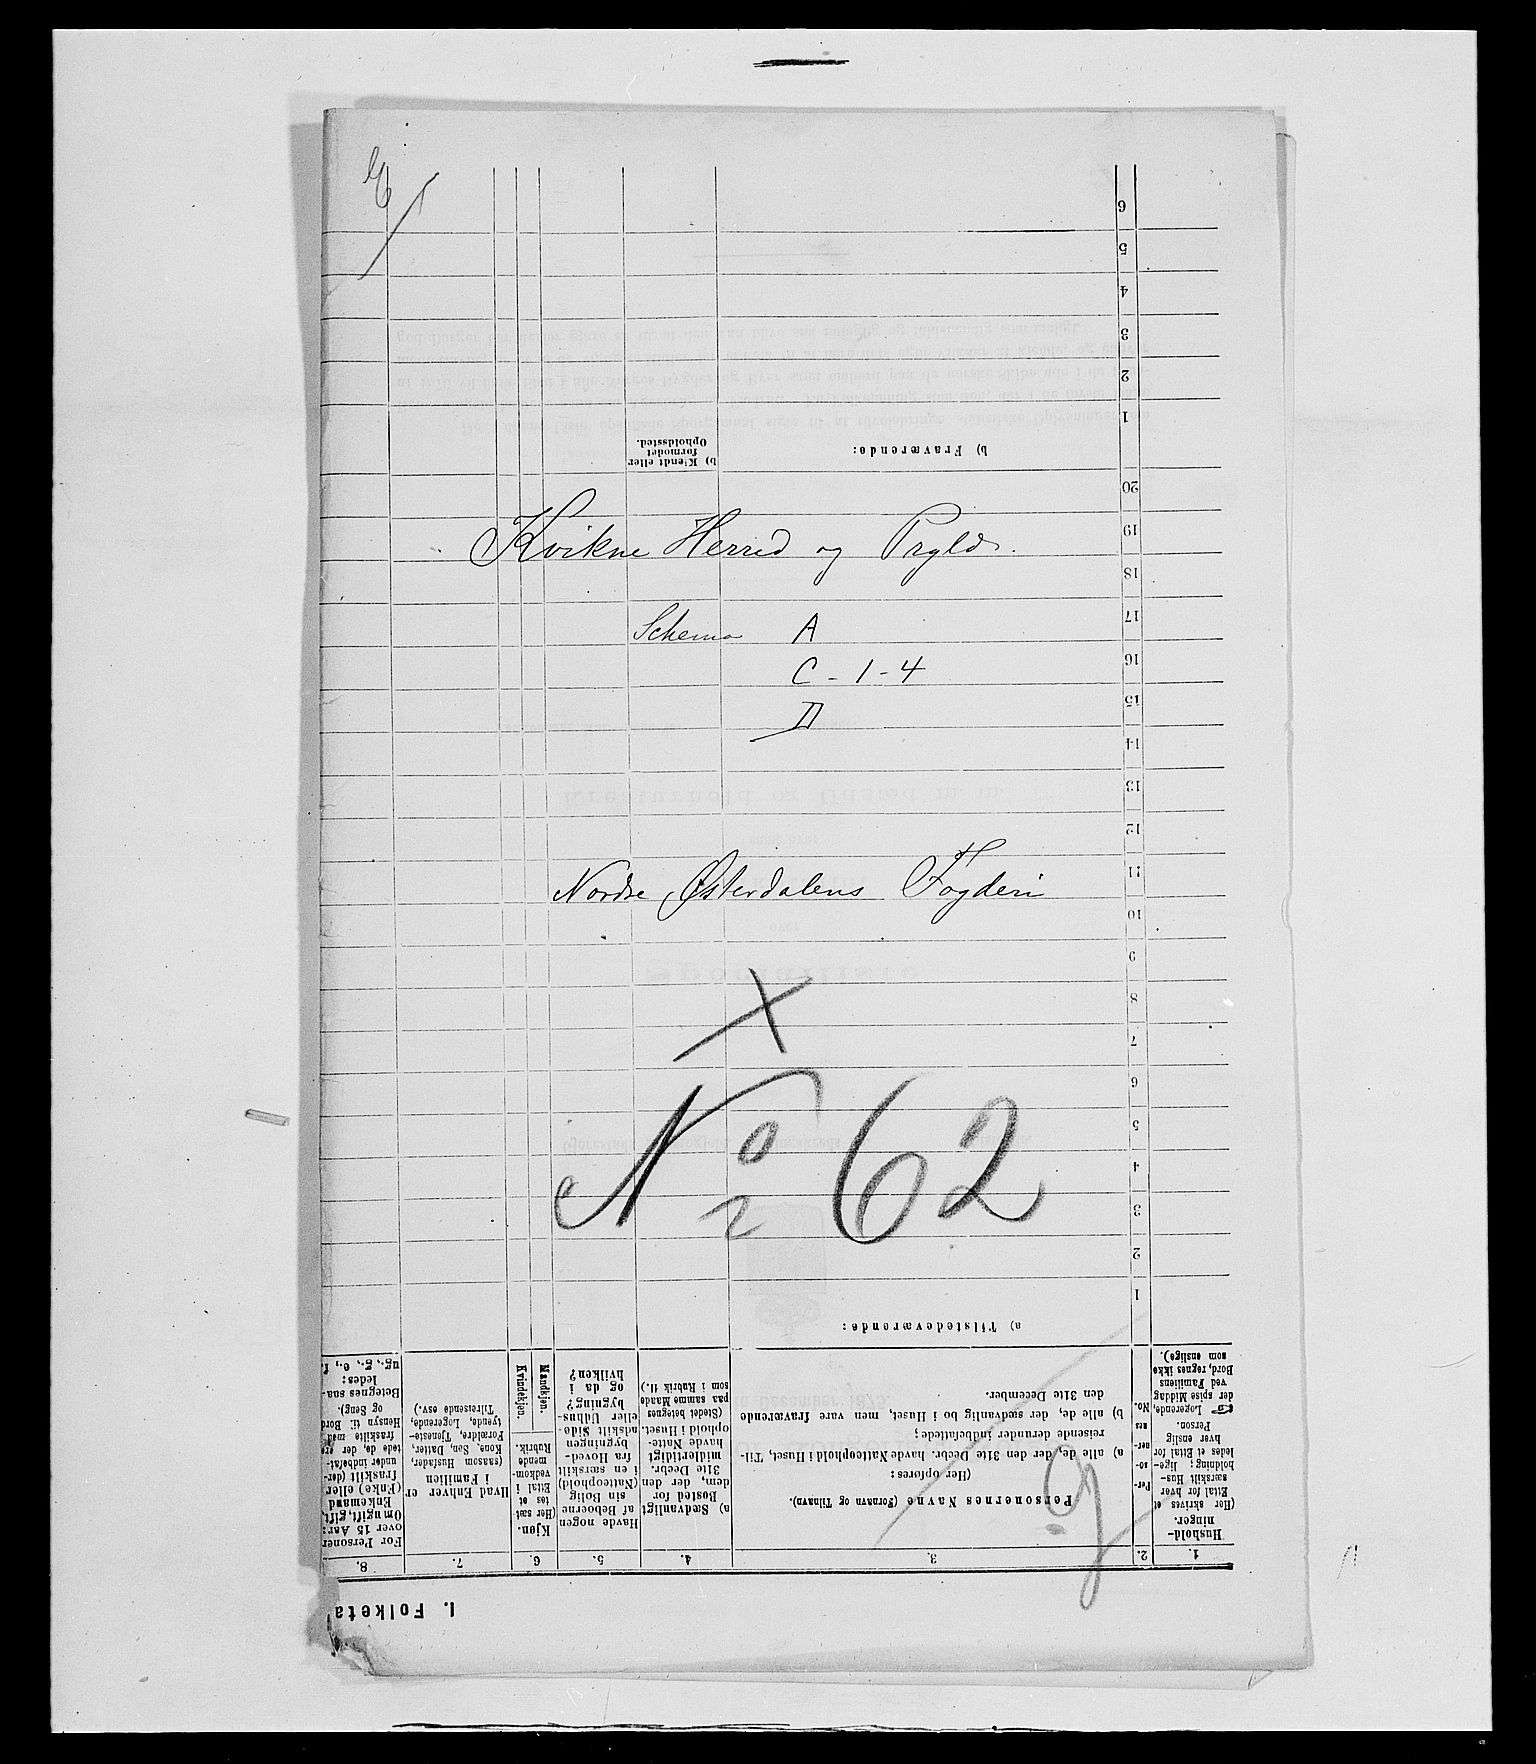 Kvikne Herred og Prgld.
Schema A
C - 1 - 4
D
Nordre Østerdalens Fogderi
No 62
I. Folketa
1.
2.
3.
4.
5.
6.
7.
8.
Hushold-
ninger.
(Her skrives et
Ettal for hver
særskilt Hus-
holdning; lige-
ledes et Ettal for
hver enslig
Person.
☞ Logerende,
der spise Middag
ved Familiens
Bord, regnes ikke
som enslige).
Per-
so-
ner-
nes
No.
Personernes Navne (Fornavn og Tilnavn).
(Her opføres:
a) alle de, der den 31te Decbr. havde Natteophold i Huset, Til-
reisende derunder indbefattede;
b) alle de, der sædvanlig bo i Huset, men vare fraværende
den 31te December.
a) Sædvanligt
Bosted for
dem, der den
31te Decbr.
midlertidigt
havde Natte-
ophold i Huset.
(Stedet betegnes
paa samme Maade
som i Rubrik 11.)
Havde nogen
af Beboerne
sin Bolig
(Natteophold)
i en særskilt
fra Hoved-
bygningen
adskilt Side-
eller Udhus-
bygning?
og da i
hvilken?
Kjøn.
(Her sæt-
tes et
Ettal i
vedkom-
mende
Rubrik.
Mandkjøn.
Kvindekjøn.
Hvad Enhver er
i Familien
(saasom Husfader,
Kone, Søn, Datter,
Forældre, Tjeneste-
tyende, Logerende,
Tilreisende osv.)
For Personer
over 15 Aar:
Om ugift, gift,
Enkemand
(Enke) eller
fraskilt (der-
under indbefat-
tede da, der ere
fraskilte med
Hensyn til Bord
og Seng).
Betegnes saa-
ledes:
ug., g., e., f.
a) Tilstedeværende:
1
2
3
4
5
6
7
8
9
10
11
12
13
14
15
16
17
18
19
20
b) Fraværende:
b) Kjendt eller
formodet
Opholdssted.
1
2
3
4
5
6